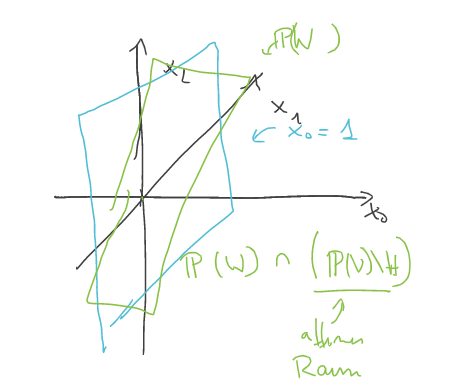 P(W)
x₂
x₁
x₀ = 1
x₀
P(W) ∩ (P(V)\H)
affiner
Raum